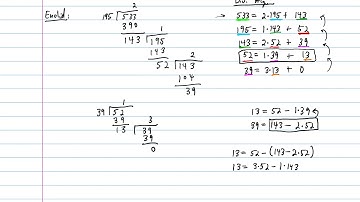 Euclid:
2
195 ) 533
390 1
143 ) 195
143 2
52 ) 143
104
39
1
39 ) 52
39 3
13 ) 39
39
0
→ 533 = 2·195 + 143
195 = 1·143 + 52
143 = 2·52 + 39
52 = 1·39 + 13
39 = 3·13 + 0
13 = 52 - 1·39
39 = 143 - 2·52
13 = 52 - (143 - 2·52)
13 = 3·52 - 1·143